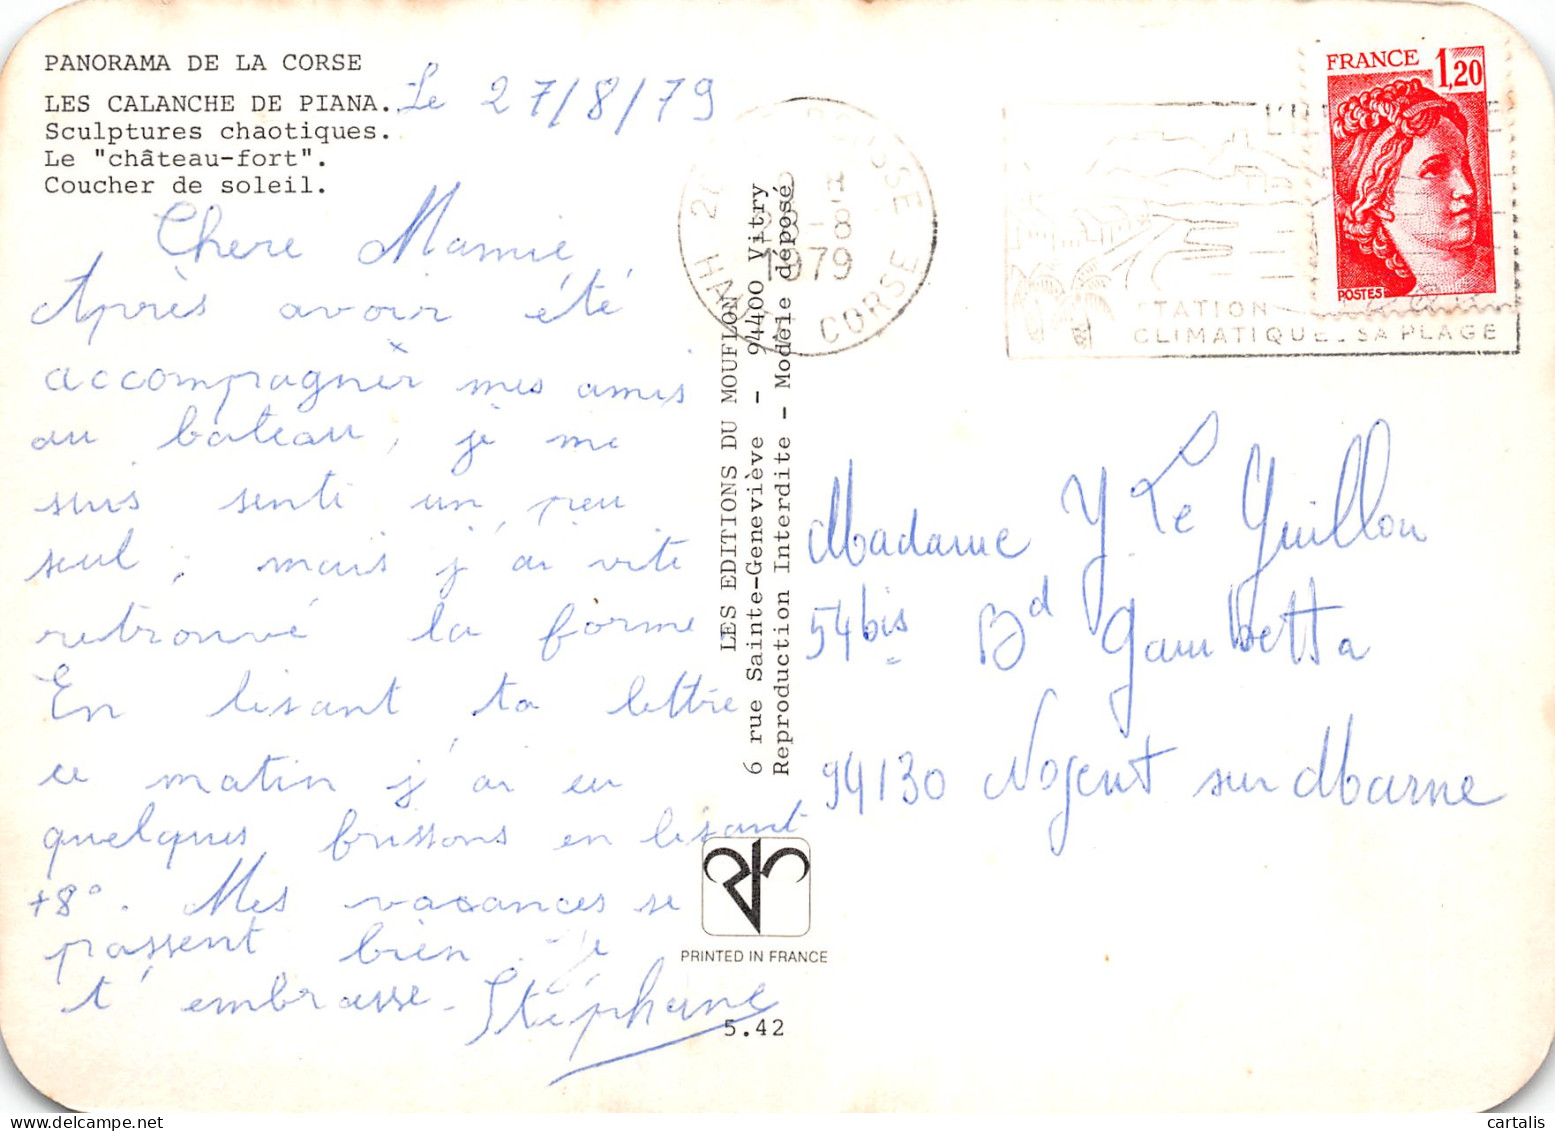 PANORAMA DE LA CORSE
LES CALANCHE DE PIANA.
Sculptures chaotiques.
Le "château-fort".
Coucher de soleil.
Le 27/8/79
Chere Mamie,
Après avoir été
accompagner mes amis
au bateau, je me
suis senti un peu
seul, mais j'ai vite
retrouvé la forme
En lisant ta lettre
ce matin j'ai eu
quelques frissons en lisant
+8°. Mes vacances se
passent bien. je
t'embrasse - Stéphane
LES EDITIONS DU MOUFLON
6 rue Sainte-Geneviève - 94400 Vitry
Reproduction Interdite - Modèle déposé
PRINTED IN FRANCE
5.42
1979
CORSE
TATION
CLIMATIQUE_SA PLAGE
FRANCE 1,20
POSTES
Madame Y Le Guillou
54bis Bd Gambetta
94130 Nogent sur Marne
cartalis